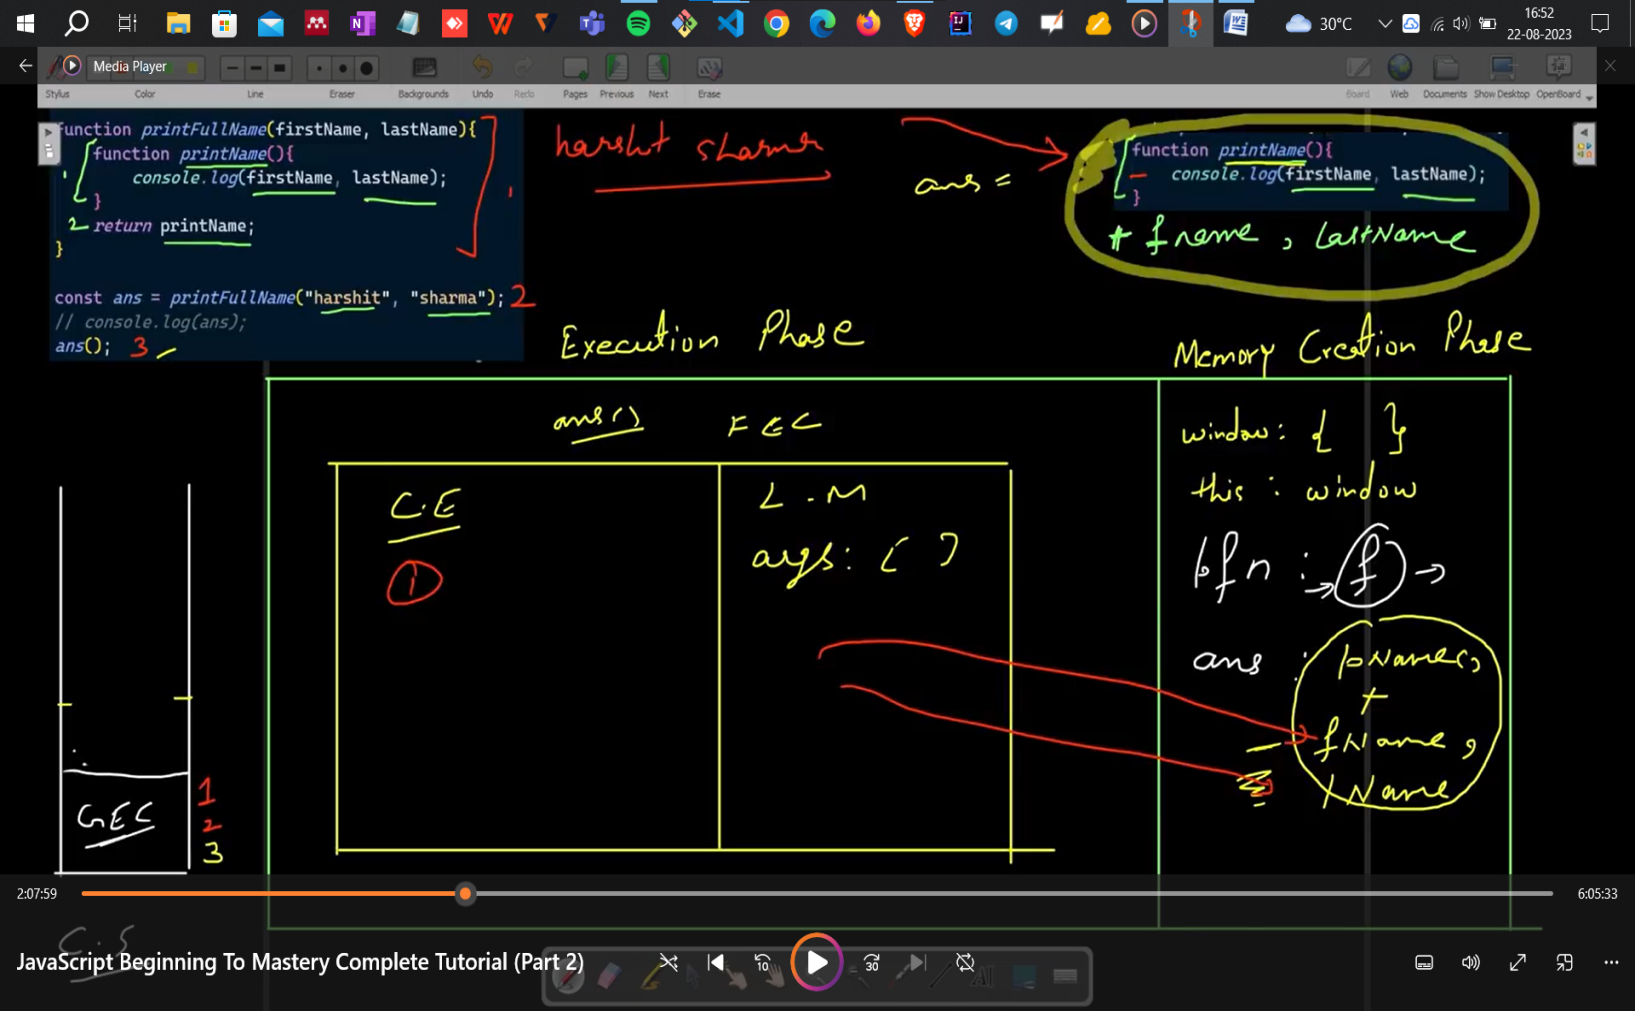 16:52
30°C
22-08-2023
Media Player
Stylus Color Line Eraser Backgrounds Undo Redo Pages Previous Next Erase Board Web Documents Show Desktop OpenBoard
function printFullName(firstName, lastName){
function printName(){
console.log(firstName, lastName);
}
2 return printName;
}
const ans = printFullName("harshit", "sharma"); 2
// console.log(ans);
ans(); 3
harshit sharma
ans =
function printName(){
console.log(firstName, lastName);
}
+ fname, lastName
Execution Phase
Memory Creation Phase
ans() FEC
C.E
1
L.M
args: [ ]
window: { }
this: window
pfn : f →
ans : pName(),
+
fName,
lName
GEC
1
2
3
2:07:59
6:05:33
C.S
JavaScript Beginning To Mastery Complete Tutorial (Part 2)
10
30